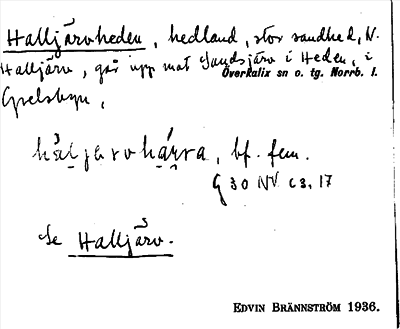 Halljärvheden, hedland, stor sandhed, N.
Halljärv, går upp mot Sandsjärv i Heden, i
Överkalix sn o. tg. Norrb. l.
Grelsbyn,
bf. fem.
G 30 NV c 3, 17
Se Halljärv.
EDVIN BRÄNNSTRÖM 1936.